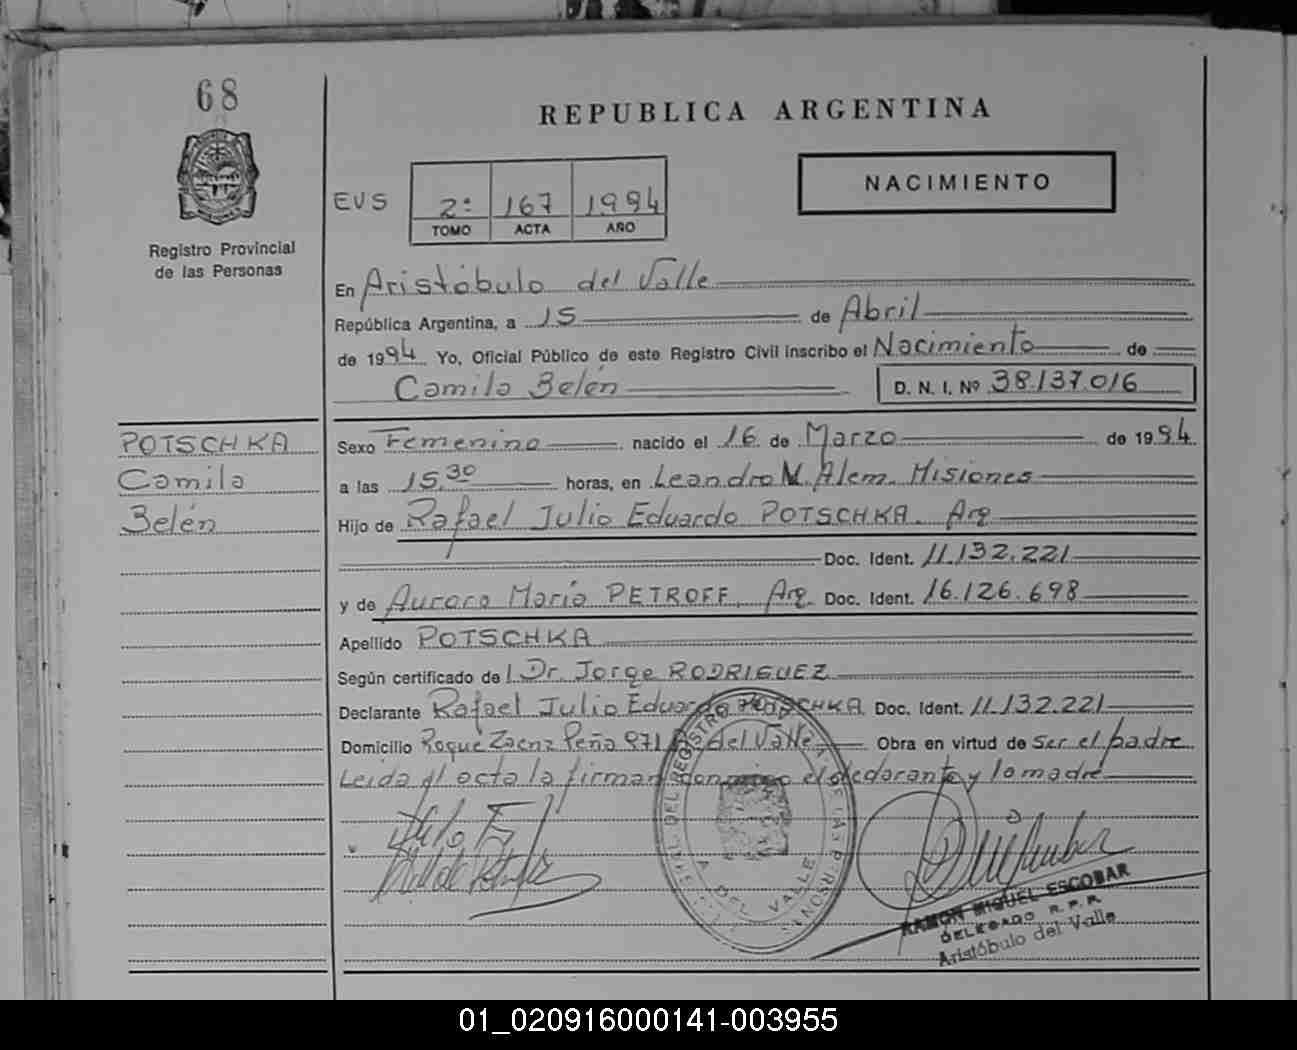 68
REPUBLICA ARGENTINA
NACIMIENTO
EVS 2º 167 1994
TOMO ACTA AÑO
Registro Provincial
de las Personas
En Aristóbulo del Valle
República Argentina, a 15 de Abril
de 1994 Yo, Oficial Público de este Registro Civil inscribo el Nacimiento de
Camila Belén D. N. I. Nº 38.137.016
POTSCHKA
Camila
Belén
Sexo Femenino nacido el 16 de Marzo de 1994
a las 15.30 horas, en Leandro N. Alem. Misiones
Hijo de Rafael Julio Eduardo POTSCHKA. Arg
Doc. Ident. 11.132.221
y de Aurora María PETROFF, Arg. Doc. Ident. 16.126.698
Apellido POTSCHKA
Según certificado de Dr. Jorge RODRIGUEZ
Declarante Rafael Julio Eduardo POTSCHKA Doc. Ident. 11.132.221
Domicilio Roque Zaenz Peña 971 del Valle Obra en virtud de ser el padre
Leida el acta la firman el declarante y la madre
DEL REGISTRO DE LAS PERSONAS
A DEL VALLE
RAMON MIGUEL ESCOBAR
DELEGADO R. P. P.
Aristóbulo del Valle
01_020916000141-003955